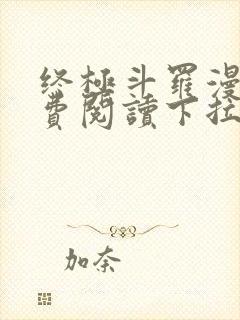 终極斗羅漫
費閱讀下拉
加奈